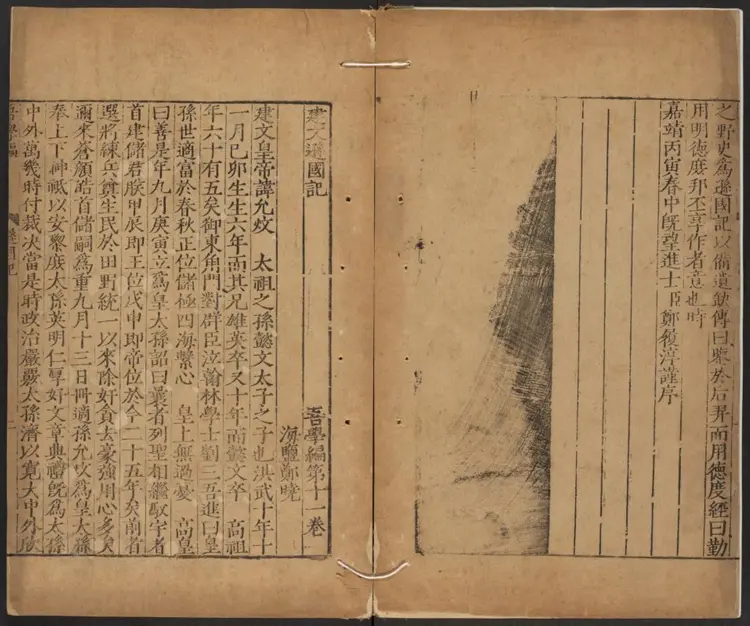 之野史爲遜國記以備遺缺傳曰鑒於后羿而用德度經曰勤
用明德庶邦丕享作者意也時
嘉靖丙寅春中旣望進士臣鄭履淳謹序
建文遜國記 吾學編第十一卷
海鹽鄭曉
建文皇帝諱允炆 太祖之孫懿文太子之子也洪武十年十
一月己卯生生六年而其兄雄英卒又十年而懿文卒 高祖
年六十有五矣御東角門對群臣泣翰林學士劉三吾進曰皇
孫世適富於春秋正位儲極四海繫心 皇上無過憂 高皇
曰善是年九月庚寅立爲皇太孫詔曰曩者列聖相繼馭宇者
首建儲君朕甲辰即王位戊申即帝位於今二十五年矣前者
選將練兵鎮生民於田野統一以來除奸貪去豪強用心多矣
邇來蒼顏皓首儲嗣爲重九月十三日冊適孫允炆爲皇太孫
奉上下神祗以安黎庶太孫英明仁孝好文章典禮旣爲太孫
中外萬幾時付裁决當是時政治嚴覈太孫濟以寬大中外欣
吾學編 遜國記 一